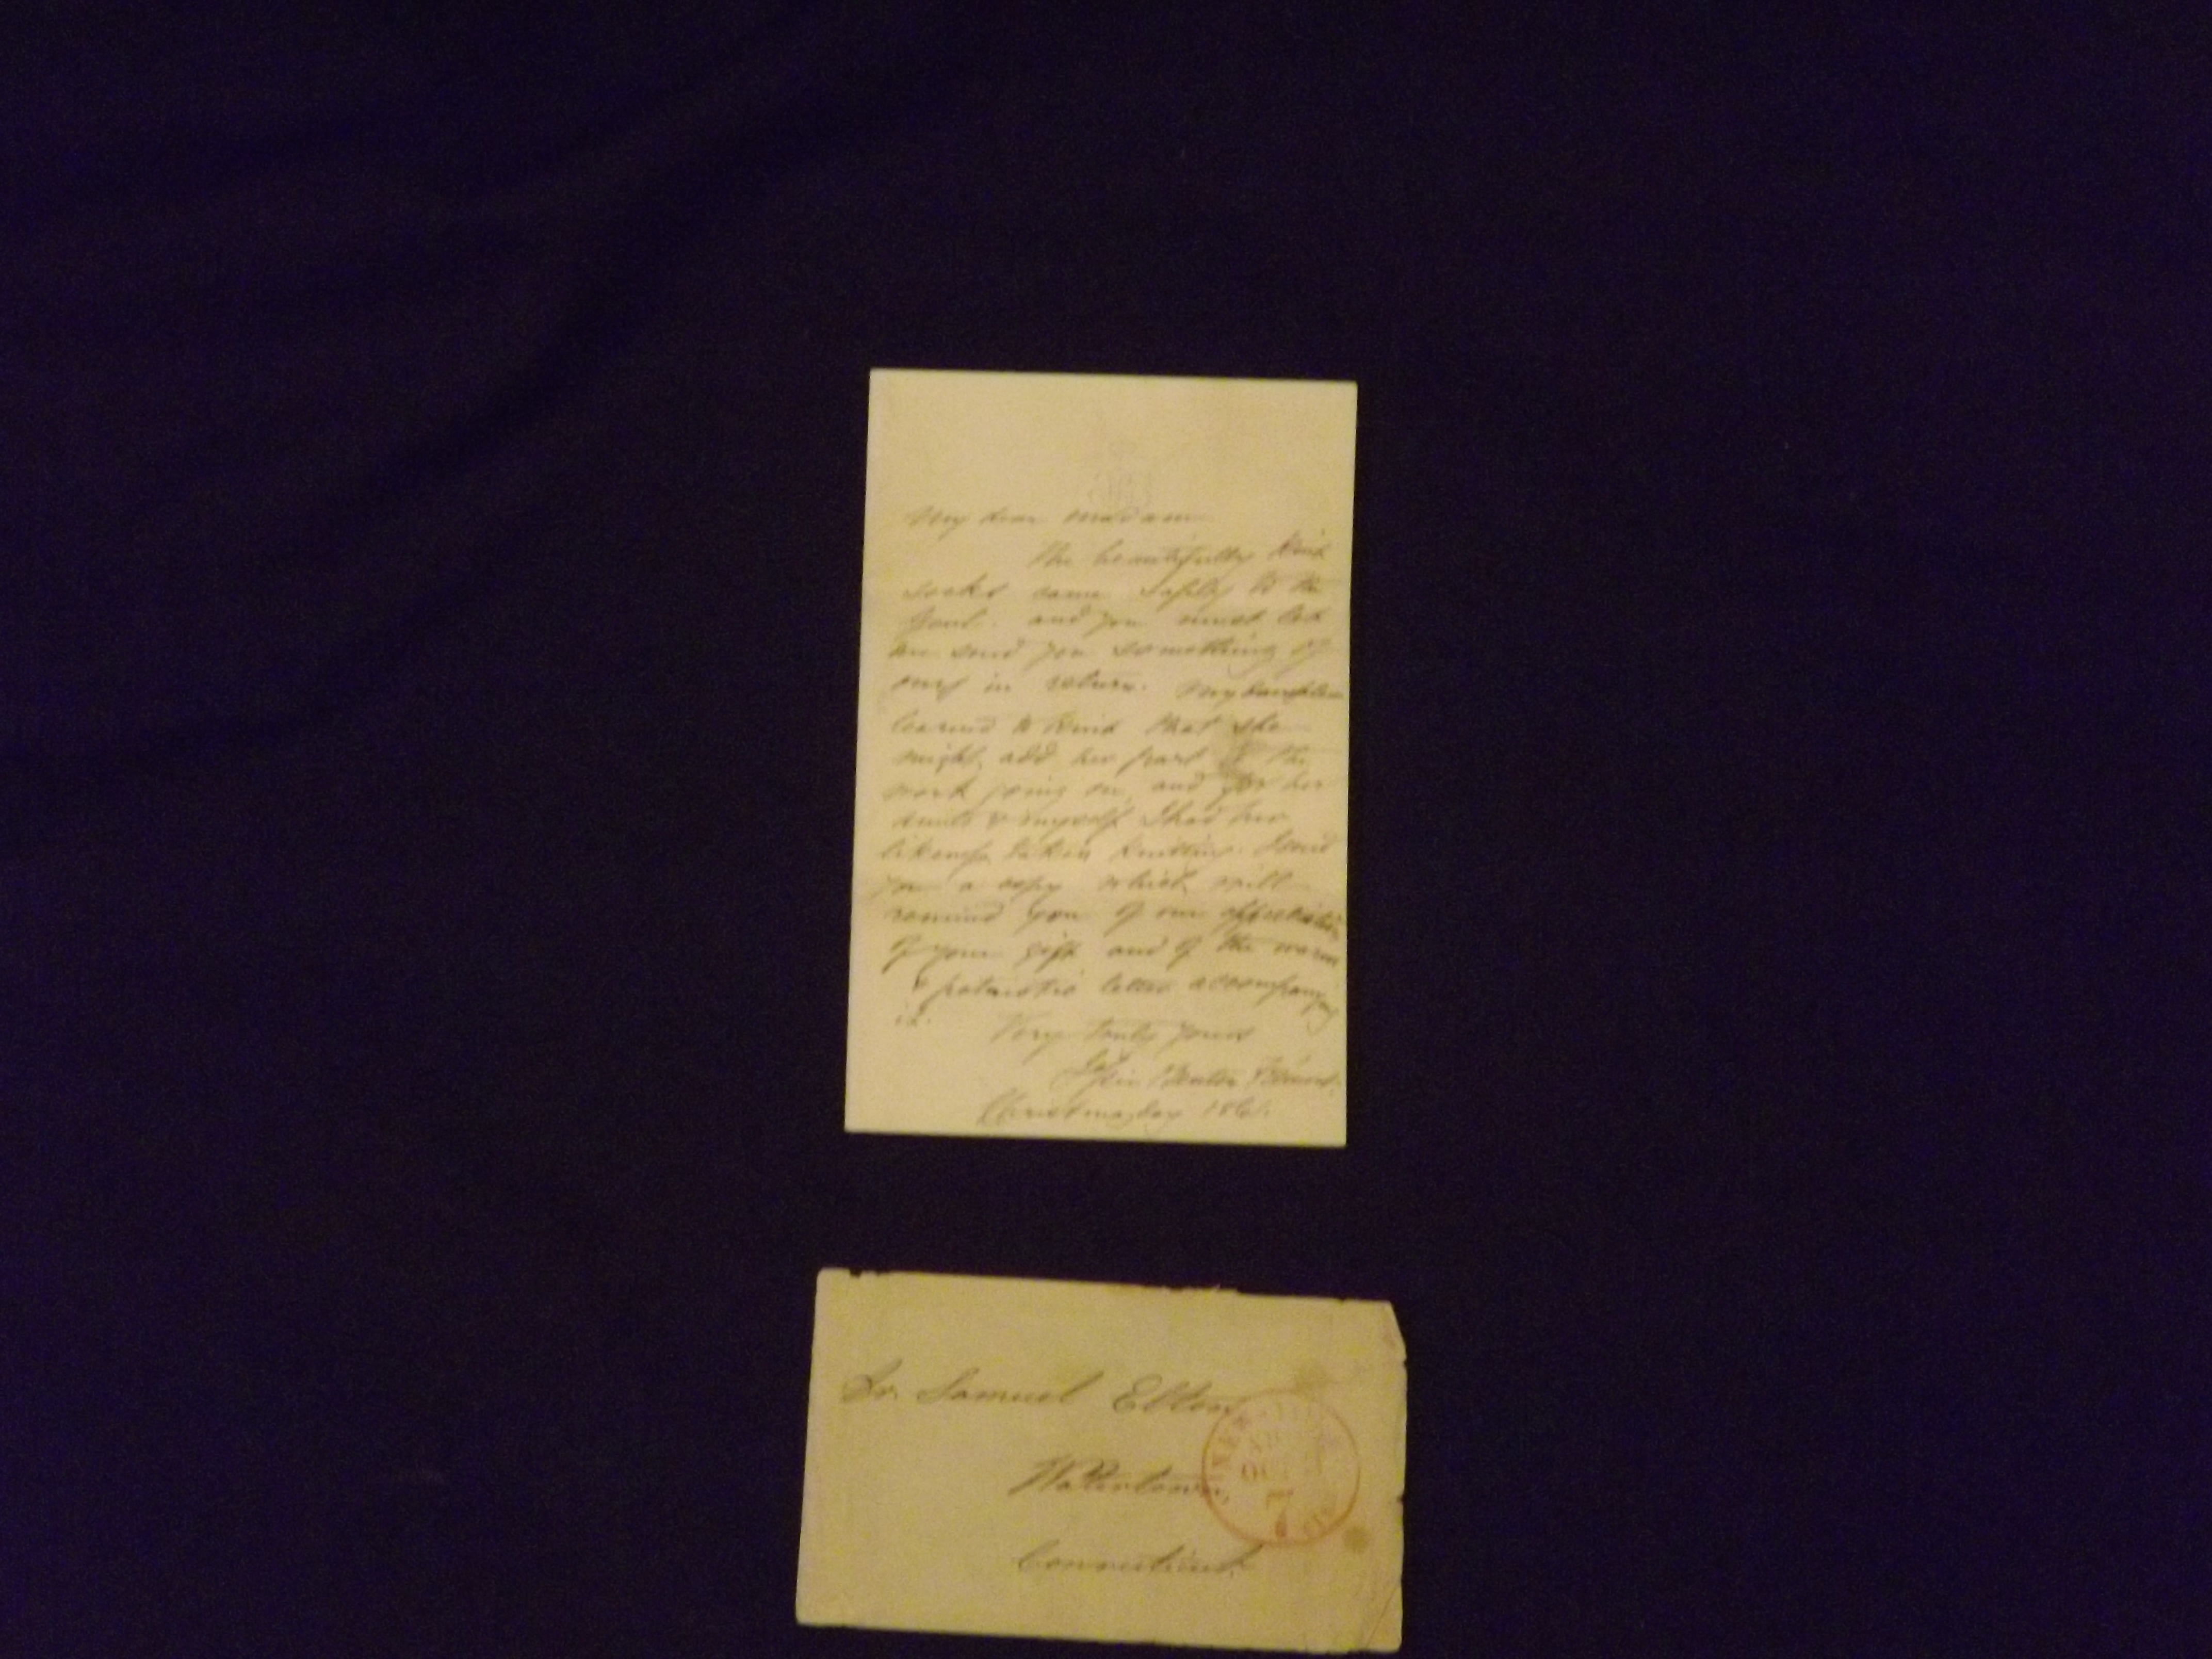 My dear Madam
The beautifully knit
socks came safely to the
Genl. and you must let
me send you something of
ours in return. My daughter
learned to knit that she
might add her part to the
work going on, and for her
aunts & myself I had her
likeness taken knitting. I send
you a copy which will
remind you of our appreciation
of your gift and of the warm
& patriotic letter accompany
it.
Very truly yours
Jessie Benton Frémont.
Christmas day 1861.
Dr. Samuel Elton
Watertown,
Connecticut.
NEW
7